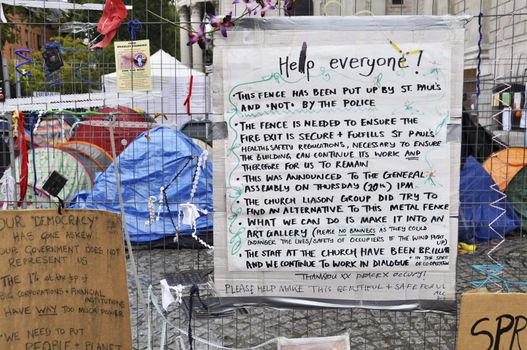 Help everyone!
THIS FENCE HAS BEEN PUT UP BY ST PAUL'S
AND *NOT* BY THE POLICE
THE FENCE IS NEEDED TO ENSURE THE
FIRE EXIT IS SECURE + FULFILLS ST PAUL'S
HEALTH&SAFETY REGULATIONS, NECESSARY TO ENSURE
THE BUILDING CAN CONTINUE ITS WORK AND
THEREFORE FOR US TO REMAIN
THIS WAS ANNOUNCED TO THE GENERAL
ASSEMBLY ON THURSDAY (20th) 1PM
THE CHURCH LIASON GROUP DID TRY TO
FIND AN ALTERNATIVE TO THIS METAL FENCE
WHAT WE CAN DO IS MAKE IT INTO AN
ART GALLERY (PLEASE NO BANNERS AS THEY COULD
ENDANGER THE LIVES/SAFETY OF OCCUPIERS IF THE WIND PUSHES
UP)
THE STAFF AT THE CHURCH HAVE BEEN BRILLIANT
AND WE CONTINUE TO WORK IN DIALOGUE + IN THE SPIRIT
OF CO-OPERATION
THANKYOU XX OCCUPY!
PLEASE HELP MAKE THIS BEAUTIFUL + SAFE FOR US
ALL
OUR 'DEMOCRACY'
HAS GONE ASKEW
OUR GOVERNMENT DOES NOT
REPRESENT US
THE 1% at the top of
BIG CORPORATIONS & FINANCIAL
INSTITUTIONS
HAVE WAY TOO MUCH POWER
WE NEED TO PUT
PEOPLE + PLANET
SPR